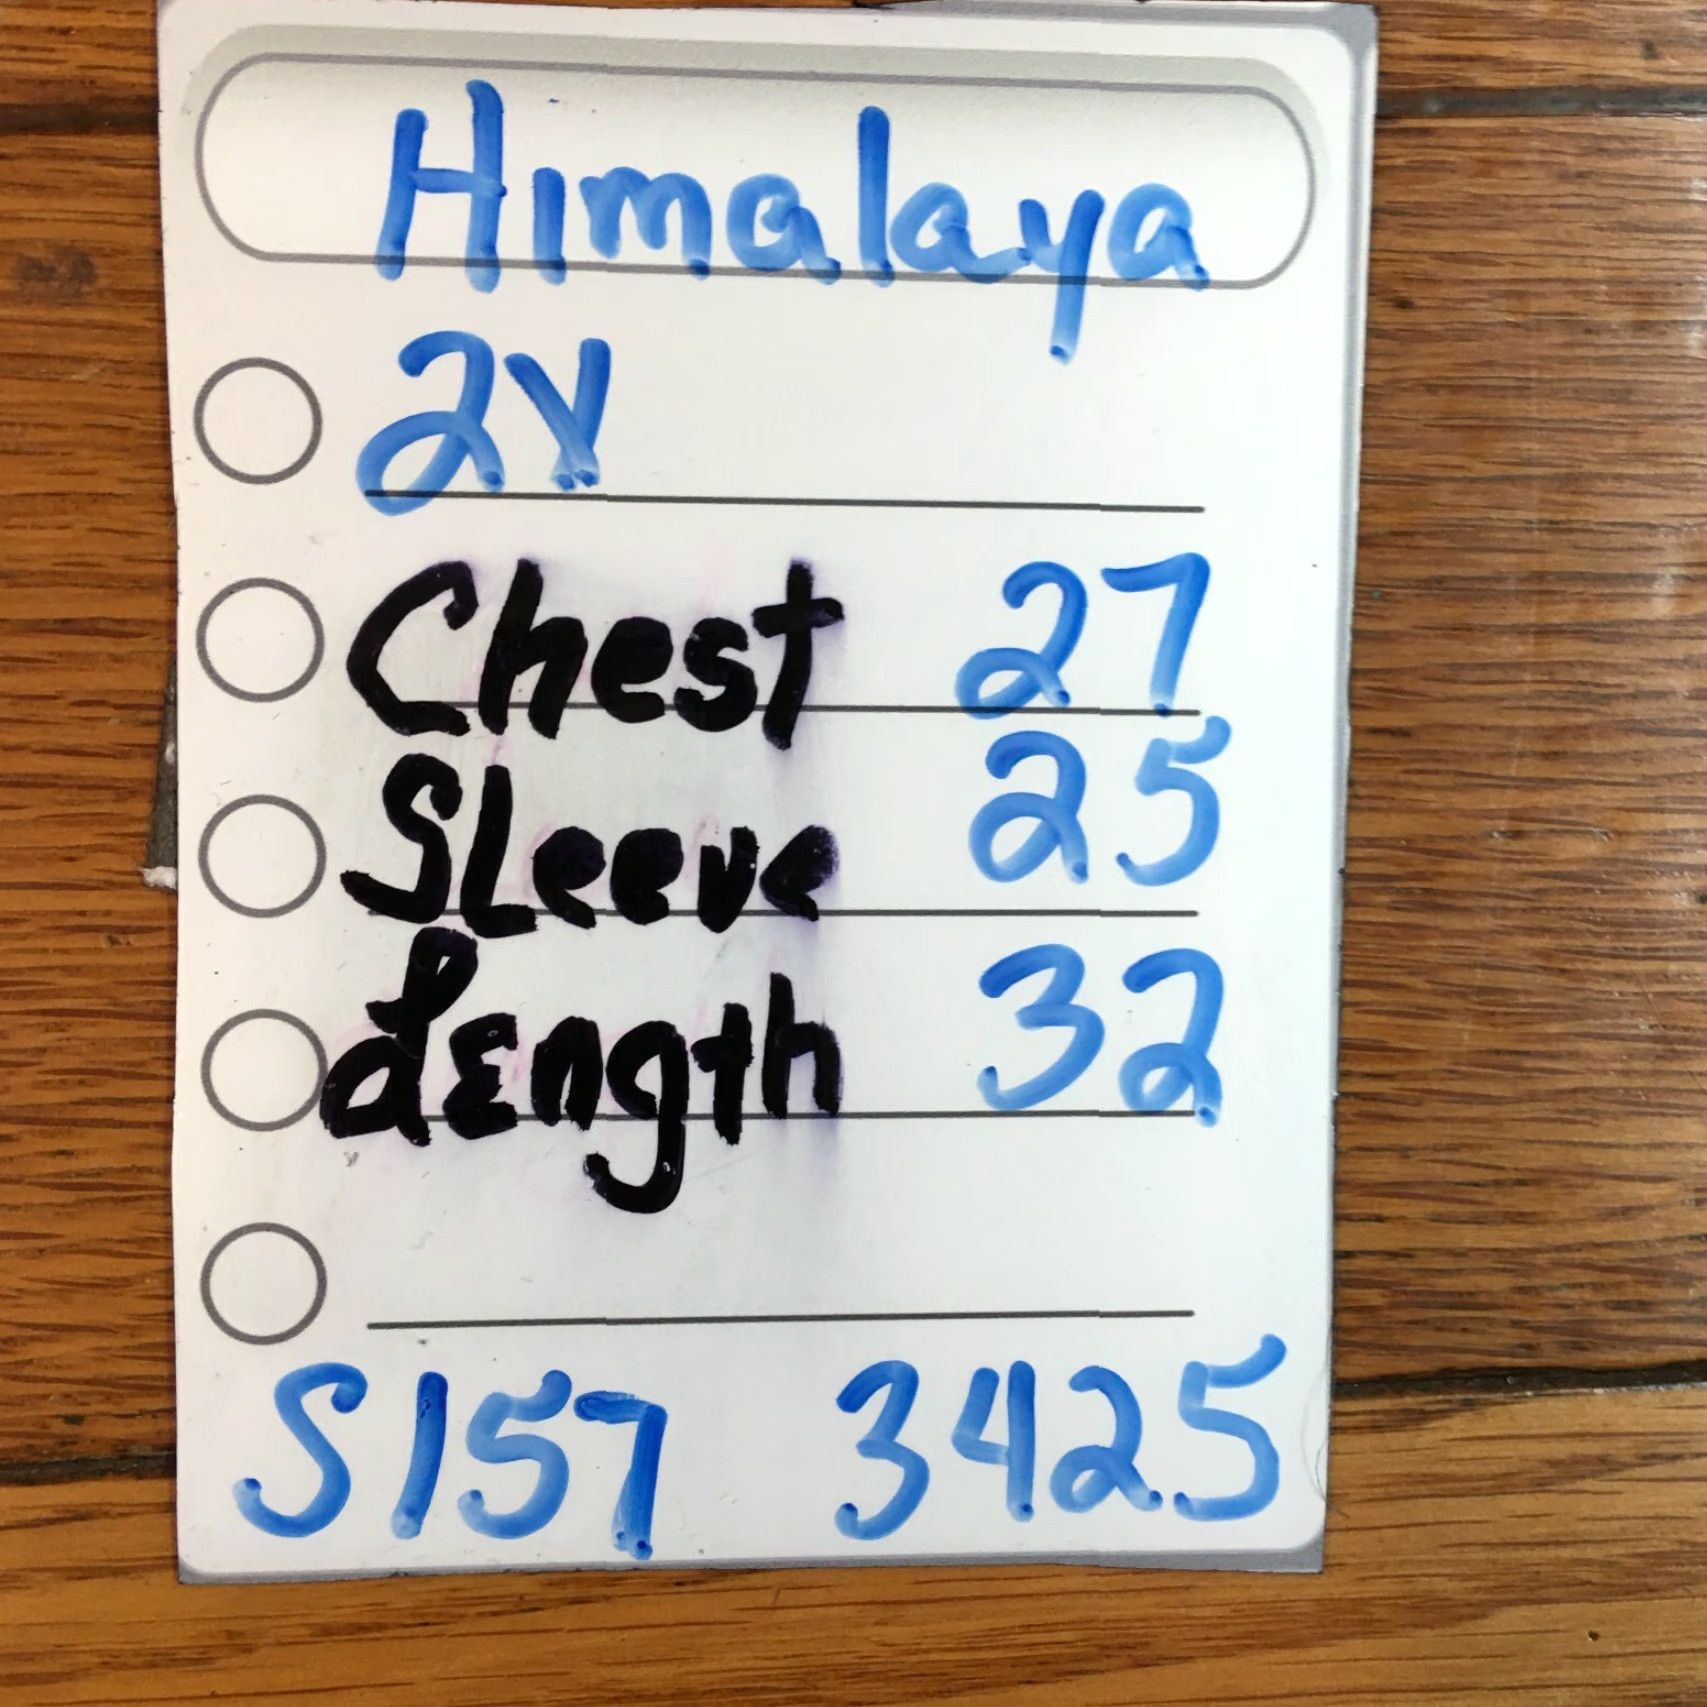 Himalaya
2X
Chest 27
SLeeve 25
Length 32
S157 3425